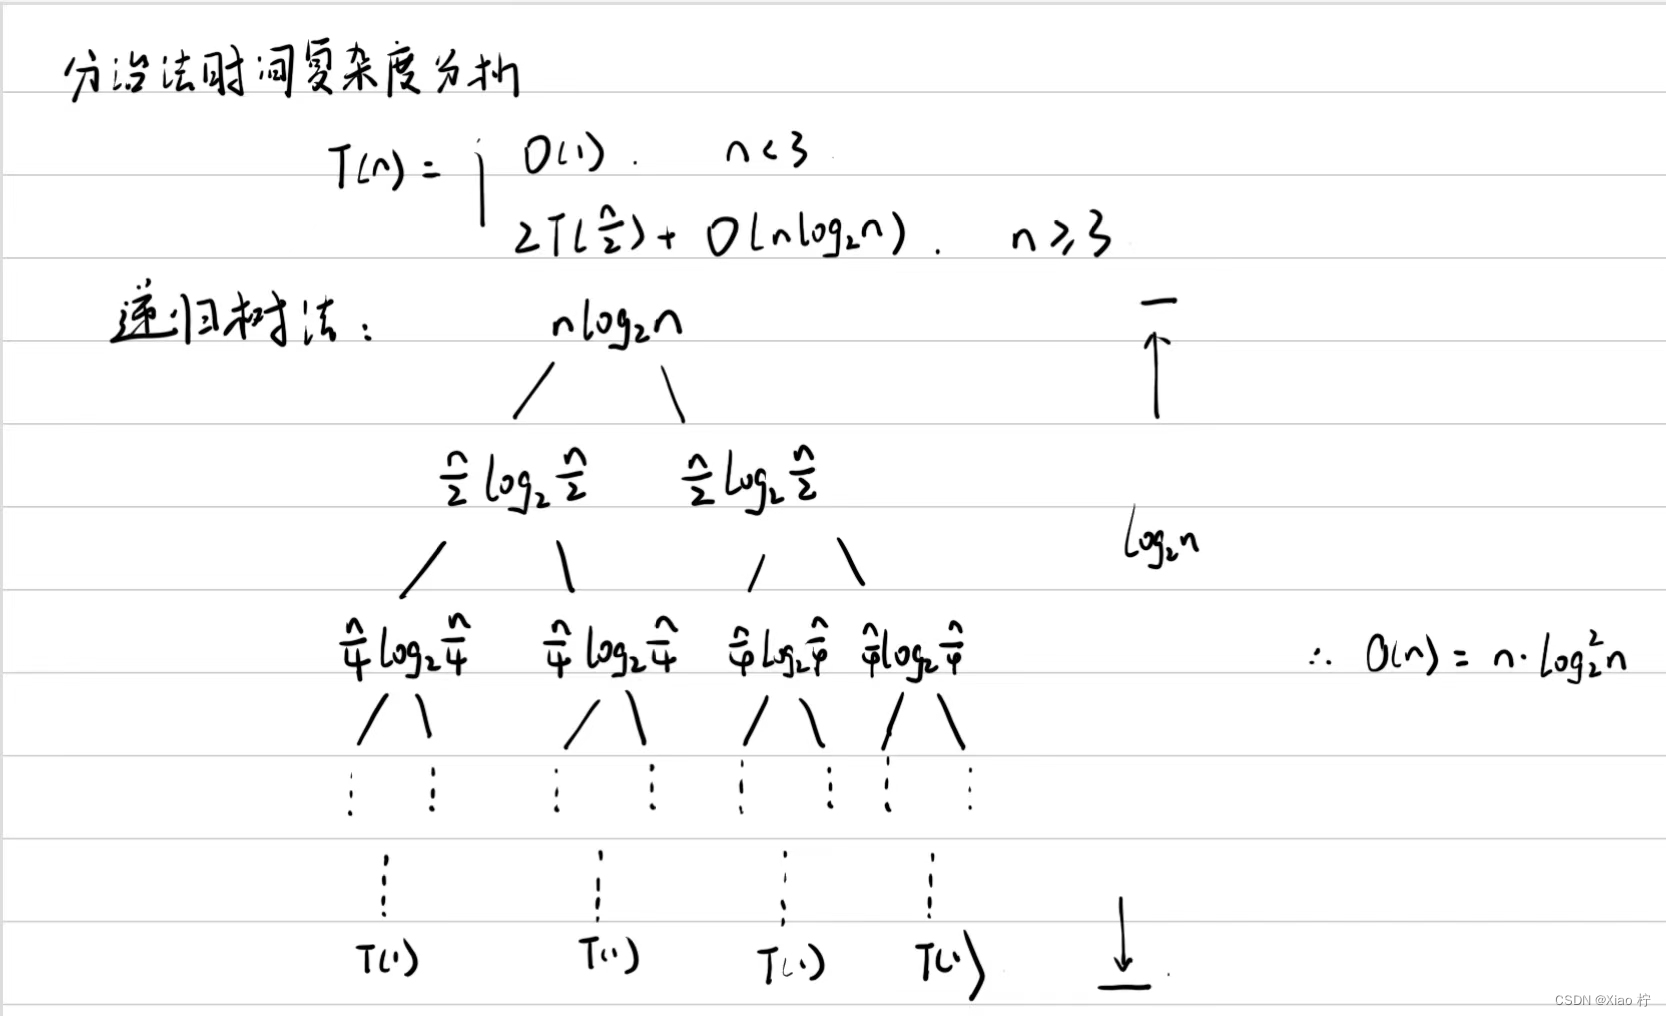 分治法时间复杂度分析
T(n) = { O(1). n<3
2T(n/2) + O(nlog₂n). n≥3
递归树法: nlog₂n
n/2 log₂ n/2 n/2 log₂ n/2
log₂n
n/4 log₂ n/4 n/4 log₂ n/4 n/4 log₂ n/4 n/4 log₂ n/4 ∴ O(n) = n·log₂²n
T(1) T(1) T(1) T(1)
CSDN @Xiao 柠